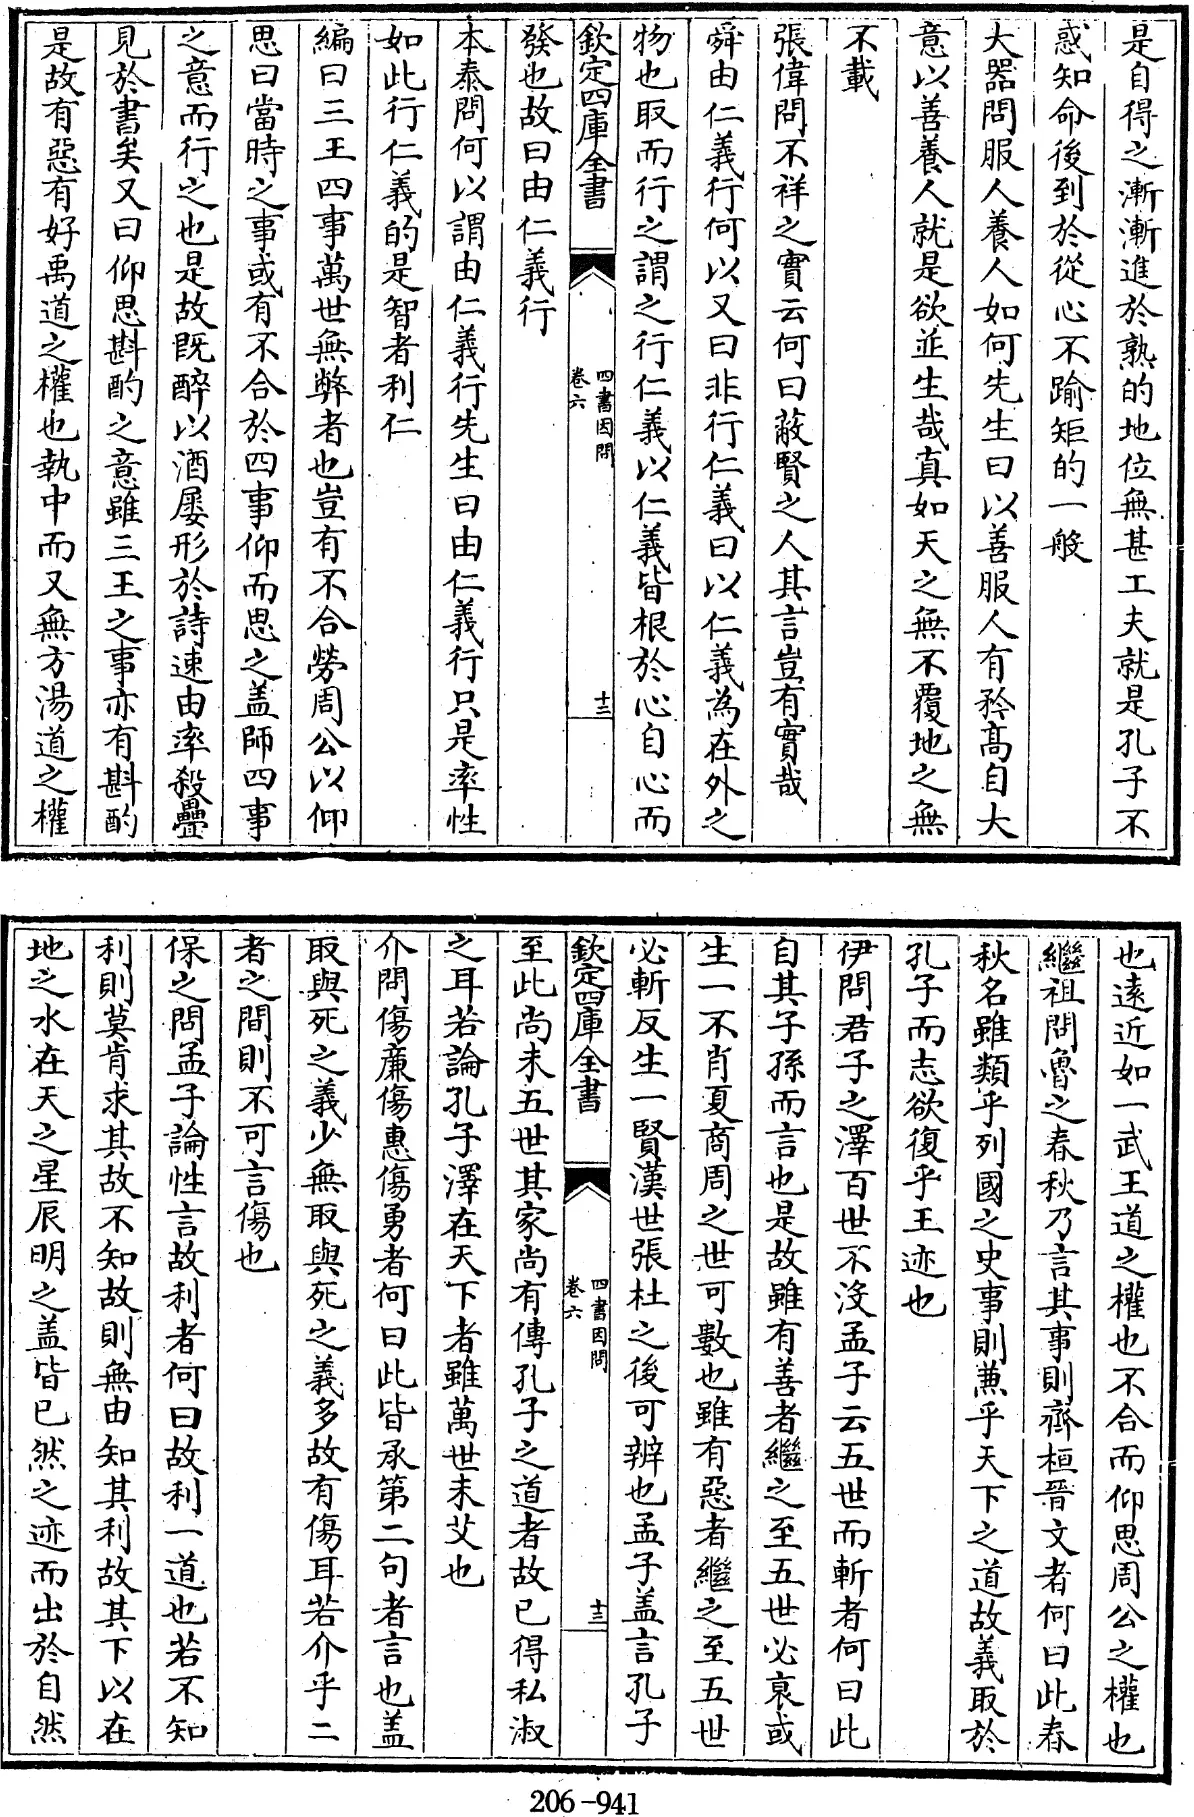 是自得之漸漸進於熟的地位無甚工夫就是孔子不
惑知命後到於從心不踰矩的一般
大器問服人養人如何先生曰以善服人有矜高自大
意以善養人就是欲並生哉真如天之無不覆地之無
不載
張偉問不祥之實云何曰蔽賢之人其言豈有實哉
舜由仁義行何以又曰非行仁義曰以仁義為在外之
物也取而行之謂之行仁義以仁義皆根於心自心而
欽定四庫全書
四書因問
卷六
十三
發也故曰由仁義行
本泰問何以謂由仁義行先生曰由仁義行只是率性
如此行仁義的是智者利仁
編曰三王四事萬世無弊者也豈有不合勞周公以仰
思曰當時之事或有不合於四事仰而思之盖師四事
之意而行之也是故既醉以酒屡形於詩速由率殺疊
見於書矣又曰仰思斟酌之意雖三王之事亦有斟酌
是故有惡有好禹道之權也執中而又無方湯道之權
也遠近如一武王道之權也不合而仰思周公之權也
繼祖問魯之春秋乃言其事則齊桓晉文者何曰此春
秋名雖類乎列國之史事則兼乎天下之道故義取於
孔子而志欲復乎王迹也
伊問君子之澤百世不沒孟子云五世而斬者何曰此
自其子孫而言也是故雖有善者繼之至五世必衰或
生一不肖夏商周之世可數也雖有惡者繼之至五世
必斬反生一賢漢世張杜之後可辨也孟子盖言孔子
欽定四庫全書
四書因問
卷六
十三
至此尚未五世其家尚有傳孔子之道者故已得私淑
之耳若論孔子澤在天下者雖萬世未艾也
介問傷廉傷惠傷勇者何曰此皆承第二句者言也盖
取與死之義少無取與死之義多故有傷耳若介乎二
者之間則不可言傷也
保之問孟子論性言故利者何曰故利一道也若不知
利則莫肯求其故不知故則無由知其利故其下以在
地之水在天之星辰明之盖皆已然之迹而出於自然
206-941